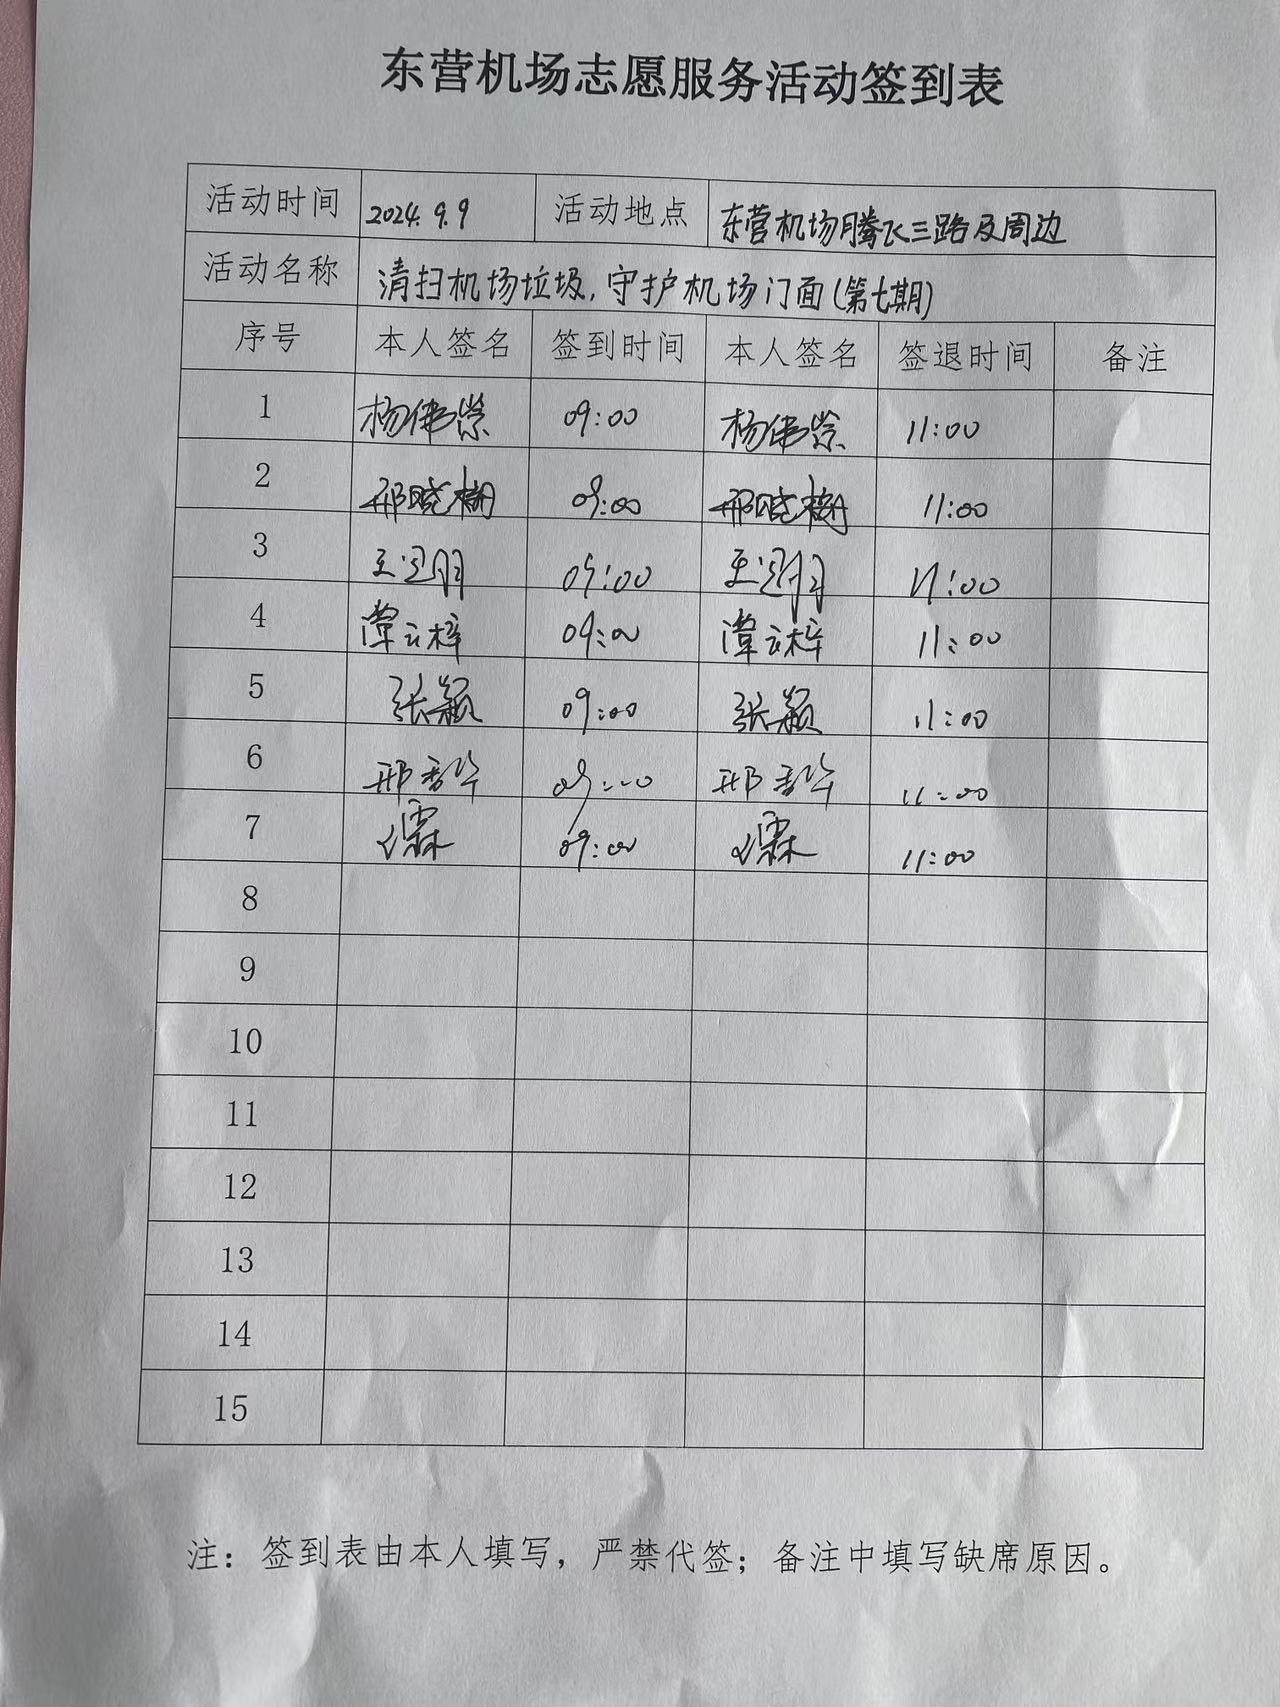 东营机场志愿服务活动签到表
活动时间 2024.9.9 活动地点 东营机场腾飞三路及周边
活动名称 清扫机场垃圾,守护机场门面(第七期)
序号 本人签名 签到时间 本人签名 签退时间 备注
1 杨伟崇 09:00 杨伟崇 11:00
2 邢晓樹 09:00 邢晓樹 11:00
3 09:00 11:00
4 09:00 11:00
5 张颖 09:00 张颖 11:00
6 邢秀华 09:00 邢秀华 11:00
7 09:00 11:00
8
9
10
11
12
13
14
15
注：签到表由本人填写，严禁代签；备注中填写缺席原因。